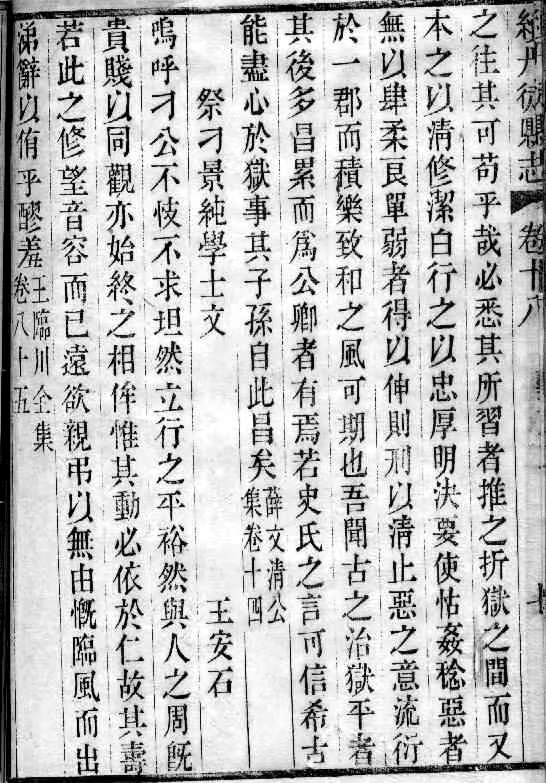 續丹徒縣志 卷十八
之往其可苟乎哉必悉其所習者推之折獄之間而又
本之以清修潔白行之以忠厚明決要使怙姦稔惡者
無以肆柔良單弱者得以伸則刑以清止惡之意流衍
於一郡而積樂致和之風可期也吾聞古之治獄平者
其後多昌累而爲公卿者有焉若史氏之言可信希古
能盡心於獄事其子孫自此昌矣薛文清公集卷十四
祭刁景純學士文 王安石
嗚呼刁公不忮不求坦然立行之平裕然與人之周旣
貴賤以同觀亦始終之相侔惟其動必依於仁故其壽
若此之修望音容而已遠欲親弔以無由慨臨風而出
涕辭以侑乎醪羞王臨川全集卷八十五